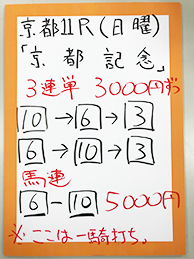 京都11R(日曜)
「京都記念」
3連単 3000円ずつ
10→6→3
6→10→3
馬連
6-10 5000円
※ここは一騎打ち。